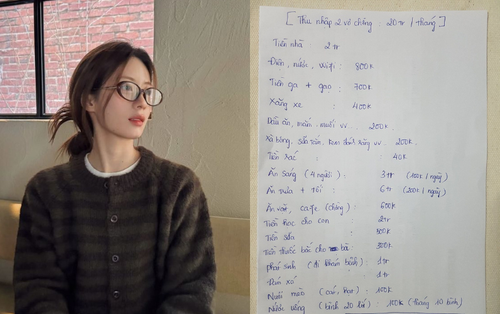 [ Thu nhập 2 vợ chồng : 20 tr / tháng ]
Tiền nhà 2 tr
Điện, nước, wifi : 800k
Tiền ga + gạo : 700k
Xăng xe : 400k
Dầu ăn, mắm, muối vv... 200k.
Xà bông, sữa tắm, kem đánh răng vv.. 200k.
Tiền rác : 40k
Ăn sáng (4 người) : 3tr (100k / ngày)
Ăn trưa + tối : 6tr (200k / ngày)
Ăn vặt, cafe (chồng) : 600k
Tiền học cho con : 2tr
Tiền sữa : 800k
Tiền thuốc bắc cho bà : 300k
Phát sinh (đi khám bệnh) : 1tr
Đám xá : 1tr
Nuôi mèo (cát, hạt) : 100k
Nước uống (bình 20 lít) : 100k (tháng 10 bình)